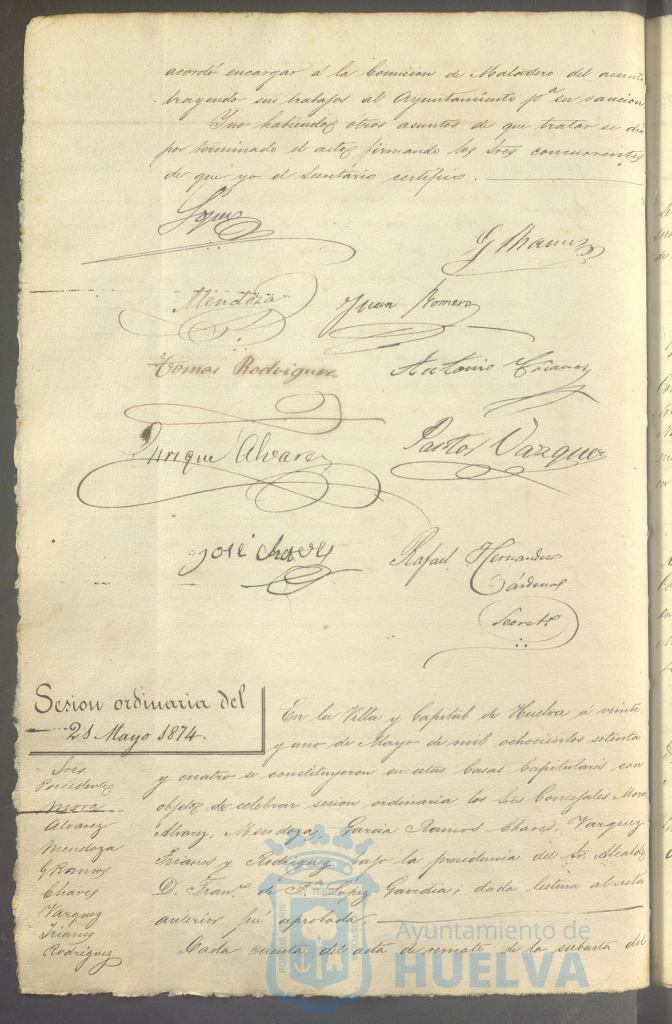 acordó encargar á la Comision de Matadero del asunto
trayendo sus trabajos al Ayuntamiento pª su sancion
Y no habiendo otros asuntos de que tratar se dió
por terminado el acto firmando los Sres concurrentes
de que yo el Secretario certifico.
Lopez
G Ramos
Mendoza
Juan Romero
Tomas Rodriguez
Antonio
Enrique Alvarez
Pastor Vazquez
José Chaves
Rafael Hernandez
Cárdenas
Secretº
Sesion ordinaria del
21 Mayo 1874.
Sres
Presidente
Mora
Alvarez
Mendoza
G Ramos
Chaves
Vazquez
Trianes
Rodriguez
En la Villa y Capital de Huelva á veinte
y uno de Mayo de mil ochocientos setenta
y cuatro se constituyeron en estas Casas Capitulares con
objeto de celebrar sesion ordinaria los Sres Concejales Mora,
Alvarez, Mendoza, Garcia Ramos, Chaves, Vazquez
Trianes y Rodriguez bajo la presidencia del Sr. Alcalde
D. Franco. de Pª Lopez Gavidia; dada lectura al acta
anterior fué aprobada
Dada cuenta del acta de remate de la subasta del
Ayuntamiento de
HUELVA